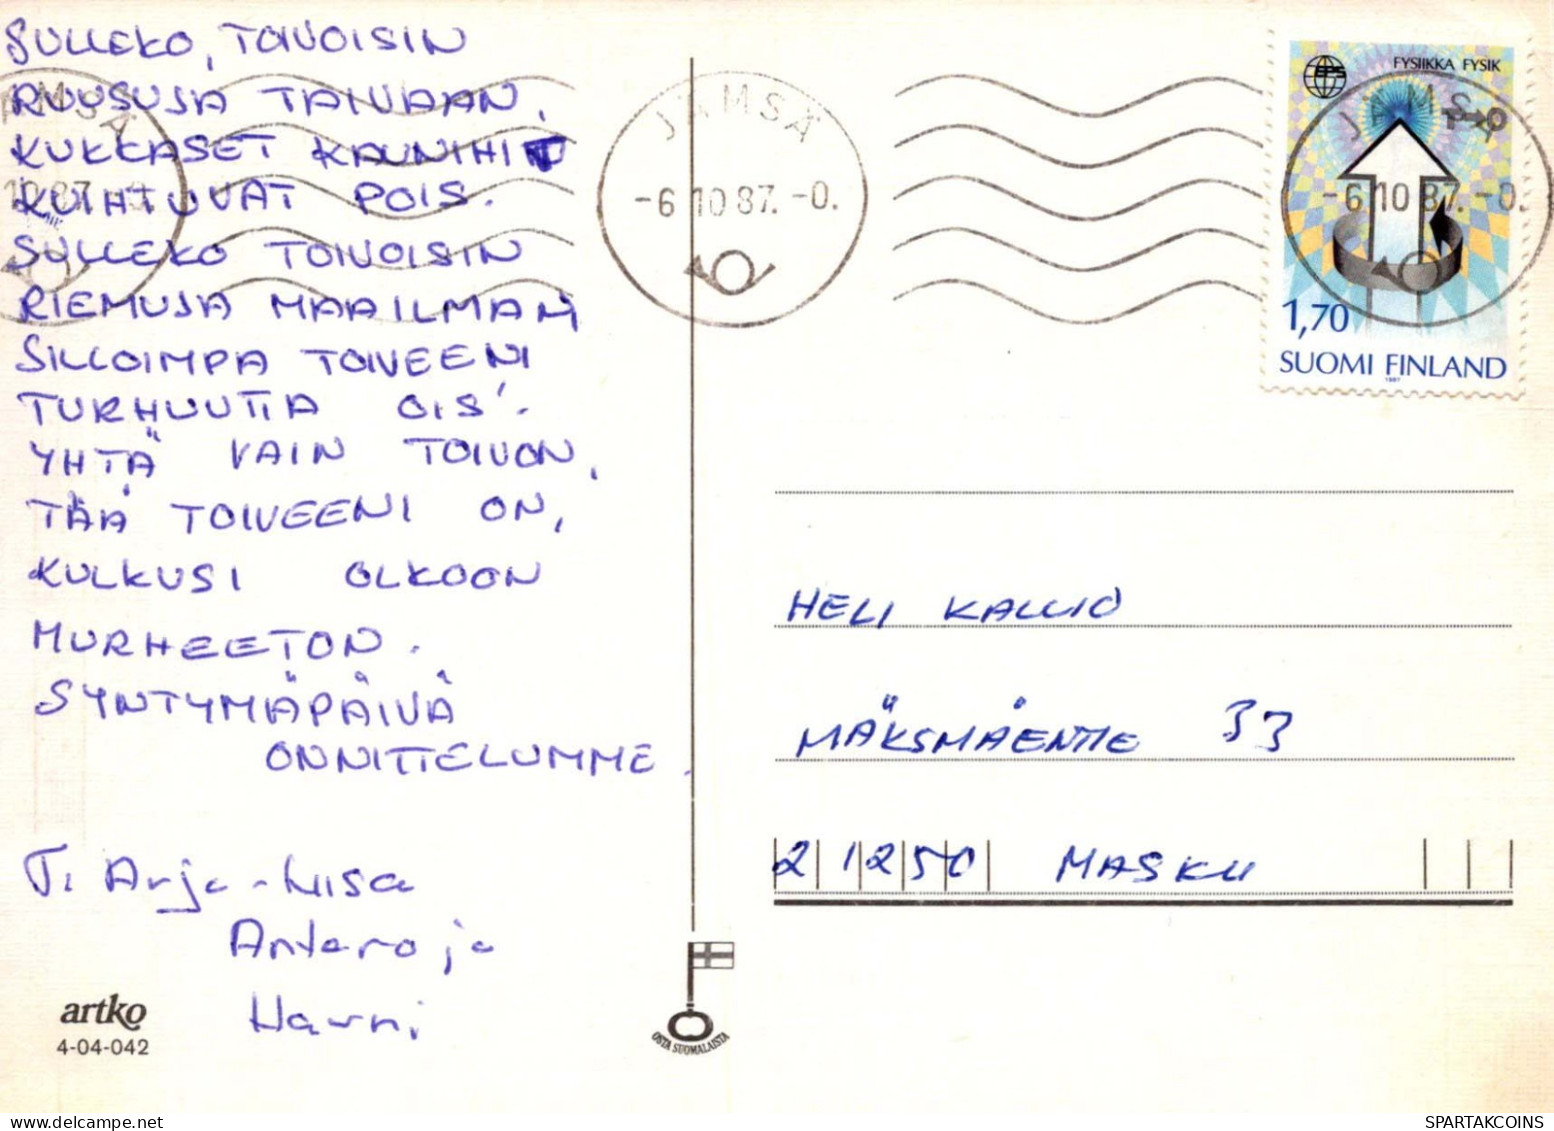 SULLEKO, TOIVOISIN
RUUSUJA TAIVAAN,
KUKKASET KAUNIHIT
KUIHTUVAT POIS.
SULLEKO TOIVOISIN
RIEMUJA MAAILMAN
SILLOINPA TOIVEENI
TURHUUTTA OIS'.
YHTÄ VAIN TOIVON,
TÄÄ TOIVEENI ON,
KULKUSI OLKOON
MURHEETON.
SYNTYMÄPÄIVÄ
ONNITTELUMME.
T. Arja-Liisa
Antero ja
Harri
artko
4-04-042
OSTA SUOMALAISTA
JÄMSÄ
-6.10 87.-0.
FYSIIKKA FYSIK
EPS
JÄMSÄ
-6.10 87.-0.
1,70
SUOMI FINLAND
1987
HELI KALLIO
MÄKSMÄENTIE 33
21250 MASKU
SPARTAKCOINS